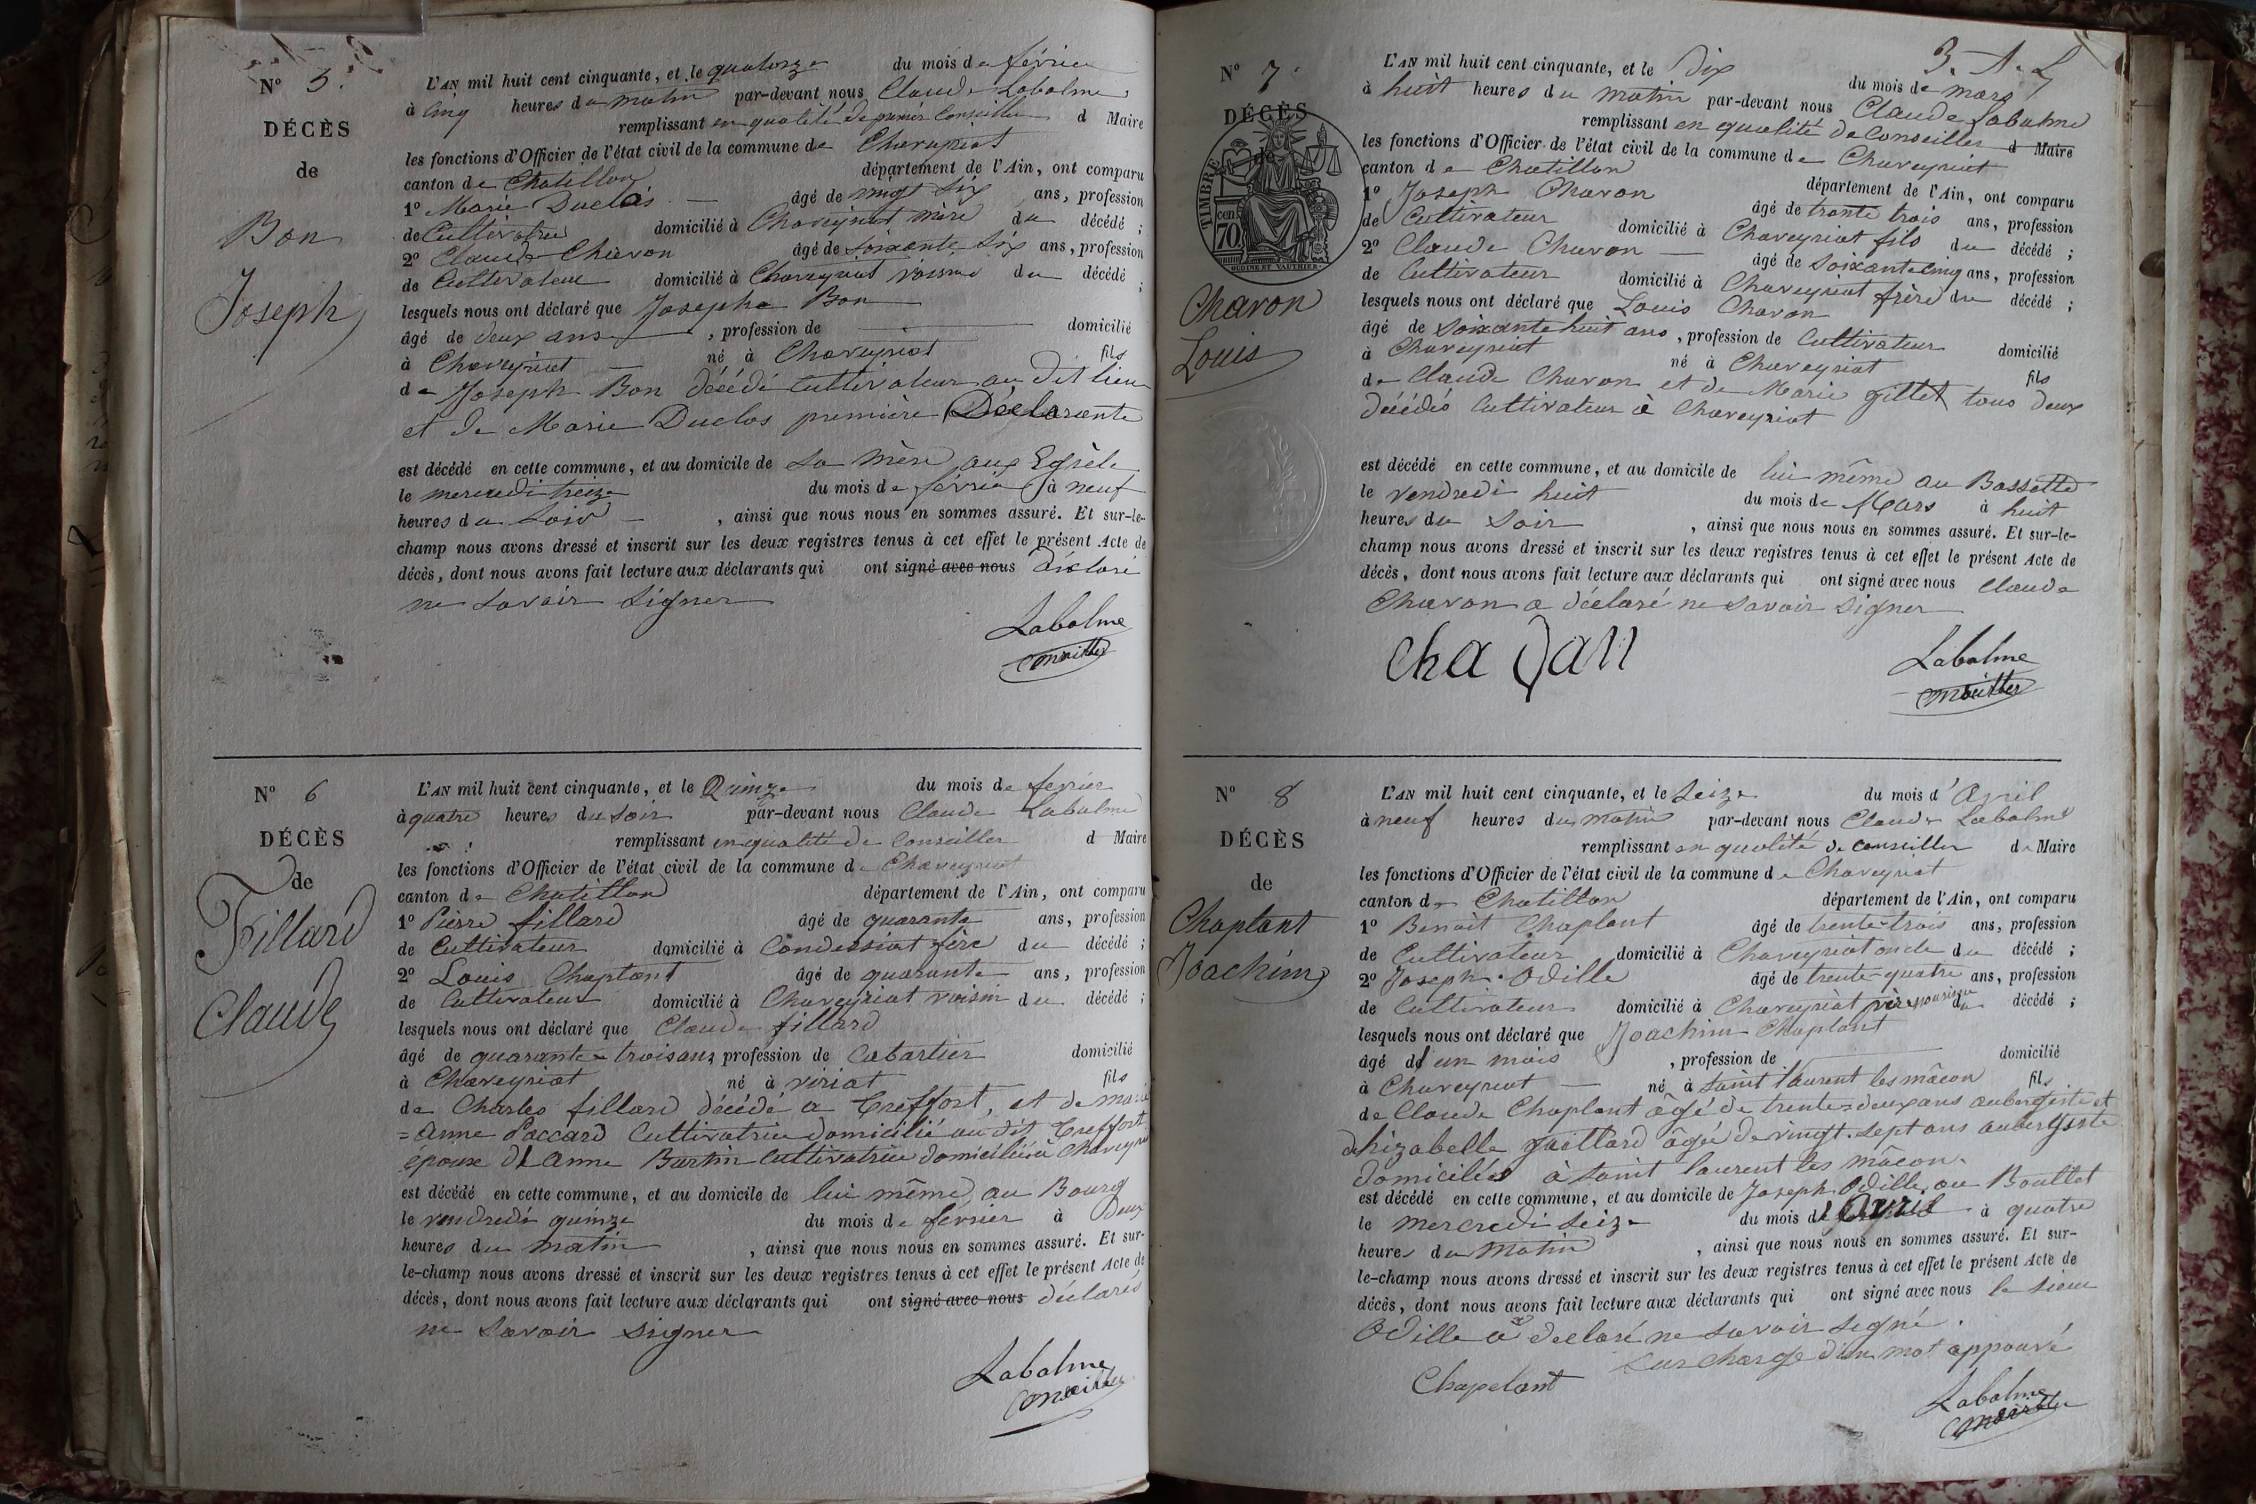 N° 5.
DÉCÈS
de
Bon
Joseph
L'AN mil huit cent cinquante, et le quatorze du mois de février
à cinq heures du matin par-devant nous Claude Labalme
remplissant en qualité de premier Conseiller d Maire
les fonctions d'Officier de l'état civil de la commune de Chaveyriat
canton de Chatillon département de l'Ain, ont comparu
1° Marie Duclos âgé de vingt six ans, profession
de Cultivatrice domicilié à Chaveyriat mère du décédé ;
2° Claude Chavon âgé de soixante six ans, profession
de Cultivateur domicilié à Chaveyriat voisin du décédé ;
lesquels nous ont déclaré que Josephe Bon
âgé de deux ans , profession de domicilié
à Chaveyriat né à Chaveyriat fils
de Joseph Bon décédé Cultivateur au dit lieu
et de Marie Duclos première Déclarante
est décédé en cette commune, et au domicile de sa mère aux
le mercredi treize du mois de février à neuf
heures du soir , ainsi que nous nous en sommes assuré. Et sur-le-
champ nous avons dressé et inscrit sur les deux registres tenus à cet effet le présent Acte de
décès, dont nous avons fait lecture aux déclarants qui ont signé avec nous déclare
ne savoir signer
Labalme
Conseiller
N° 6
DÉCÈS
de
Fillard
Claude
L'AN mil huit cent cinquante, et le Quinze du mois de fevrier
à quatre heures du soir par-devant nous Claude Labalme
remplissant en qualité de Conseiller d Maire
les fonctions d'Officier de l'état civil de la commune de Chaveyriat
canton de Chatillon département de l'Ain, ont comparu
1° Pierre fillard âgé de quarante ans, profession
de Cultivateur domicilié à Condeissiat frère du décédé ;
2° Louis Chaplant âgé de quarante ans, profession
de Cultivateur domicilié à Chaveyriat voisin du décédé ;
lesquels nous ont déclaré que Claude fillard
âgé de quarante-trois ans, profession de Cabartier domicilié
à Chaveyriat né à viriat fils
de Charles fillard décédé a Treffort, et de marie
=anne Paccard Cultivatrice domicilié au dit Treffort
epoux d'anne Burtin Cultivatrice domiciliée à Chaveyriat
est décédé en cette commune, et au domicile de lui même, au Bourg
le vendredi quinze du mois de fevrier à deux
heures du matin , ainsi que nous nous en sommes assuré. Et sur-
le-champ nous avons dressé et inscrit sur les deux registres tenus à cet effet le présent Acte de
décès, dont nous avons fait lecture aux déclarants qui ont signé avec nous déclaré
ne savoir signer
Labalme
Conseiller
3. A. L
N° 7.
DÉCÈS
de
TIMBRE
70 cen
OUDINE ET VAUTHIER
Chavon
Louis
L'AN mil huit cent cinquante, et le dix du mois de mars
à huit heures du matin par-devant nous Claude Labalme
remplissant en qualité de Conseiller d Maire
les fonctions d'Officier de l'état civil de la commune de Chaveyriat
canton de Chatillon département de l'Ain, ont comparu
1° Joseph Chavon âgé de trente trois ans, profession
de Cultivateur domicilié à Chaveyriat fils du décédé ;
2° Claude Chavon âgé de soixante cinq ans, profession
de Cultivateur domicilié à Chaveyriat frère du décédé ;
lesquels nous ont déclaré que Louis Chavon
âgé de soixante huit ans, profession de Cultivateur domicilié
à Chaveyriat né à Chaveyriat fils
de Claude Chavon et de Marie gillet tous deux
décédés Cultivateur à Chaveyriat
est décédé en cette commune, et au domicile de lui même au Bassette
le vendredi huit du mois de Mars à huit
heures du soir , ainsi que nous nous en sommes assuré. Et sur-le-
champ nous avons dressé et inscrit sur les deux registres tenus à cet effet le présent Acte de
décès, dont nous avons fait lecture aux déclarants qui ont signé avec nous Claude
Chavon a déclaré ne savoir signer
Labalme
Conseiller
N° 8
DÉCÈS
de
Chaplant
Joachim
L'AN mil huit cent cinquante, et le Seize du mois d'Avril
à neuf heures du matin par-devant nous Claude Labalme
remplissant en qualité de conseiller de Maire
les fonctions d'Officier de l'état civil de la commune de Chaveyriat
canton de Chatillon département de l'Ain, ont comparu
1° Benoit Chaplant âgé de trente-trois ans, profession
de Cultivateur domicilié à Chaveyriat oncle du décédé ;
2° Joseph Odille âgé de trente-quatre ans, profession
de Cultivateur domicilié à Chaveyriat père nourissie du décédé ;
lesquels nous ont déclaré que Joachim Chaplant
âgé d'un mois , profession de domicilié
à Chaveyriat né à saint laurent les mâcon fils
de Claude Chaplant âgé de trente=deux ans aubergiste et
dhizabelle gaillard âgée de vingt-sept ans aubergiste
domiciliés à saint laurent les mâcon
est décédé en cette commune, et au domicile de Joseph Odille, au Boullet
le mercredi seize du mois d'Avril à quatre
heures du matin , ainsi que nous nous en sommes assuré. Et sur-
le-champ nous avons dressé et inscrit sur les deux registres tenus à cet effet le présent Acte de
décès, dont nous avons fait lecture aux déclarants qui ont signé avec nous le sieur
Odille a declaré ne savoir signé.
surcharge d'un mot appouvé
Chapelant
Labalme
Conseiller